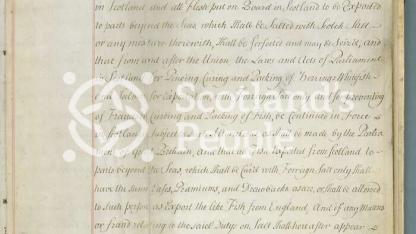 in Scotland and all flesh put on Board in Scotland to be Exported
to parts beyond the Seas, which shall be Salted with Scotch Salt
or any mixture therewith, shall be forfeited and may be Seized, and
that from and after the Union the Laws and Acts of Parliament
in Scotland for Pineing Curing and Packing of Herrings Whitefish
and Salmon for Exportation with Forraign Salt only
of Frauds in Curing and Packing of Fish, be Continued in Force
in Scotland Subject to such Alterations as shall be made by the Parlia
Great Britain, And that all fish exported from Scotland to
parts beyond the Seas, which shall be Cured with Forraign Salt only shall
have the same Eases, Praemiums, and Drawbacks as are, or shall be allowed
to such persons as Export the like Fish from England, And if any Matters
or fraud relating to the said Dutys on Salt shall hereafter appear
Scotland's
People